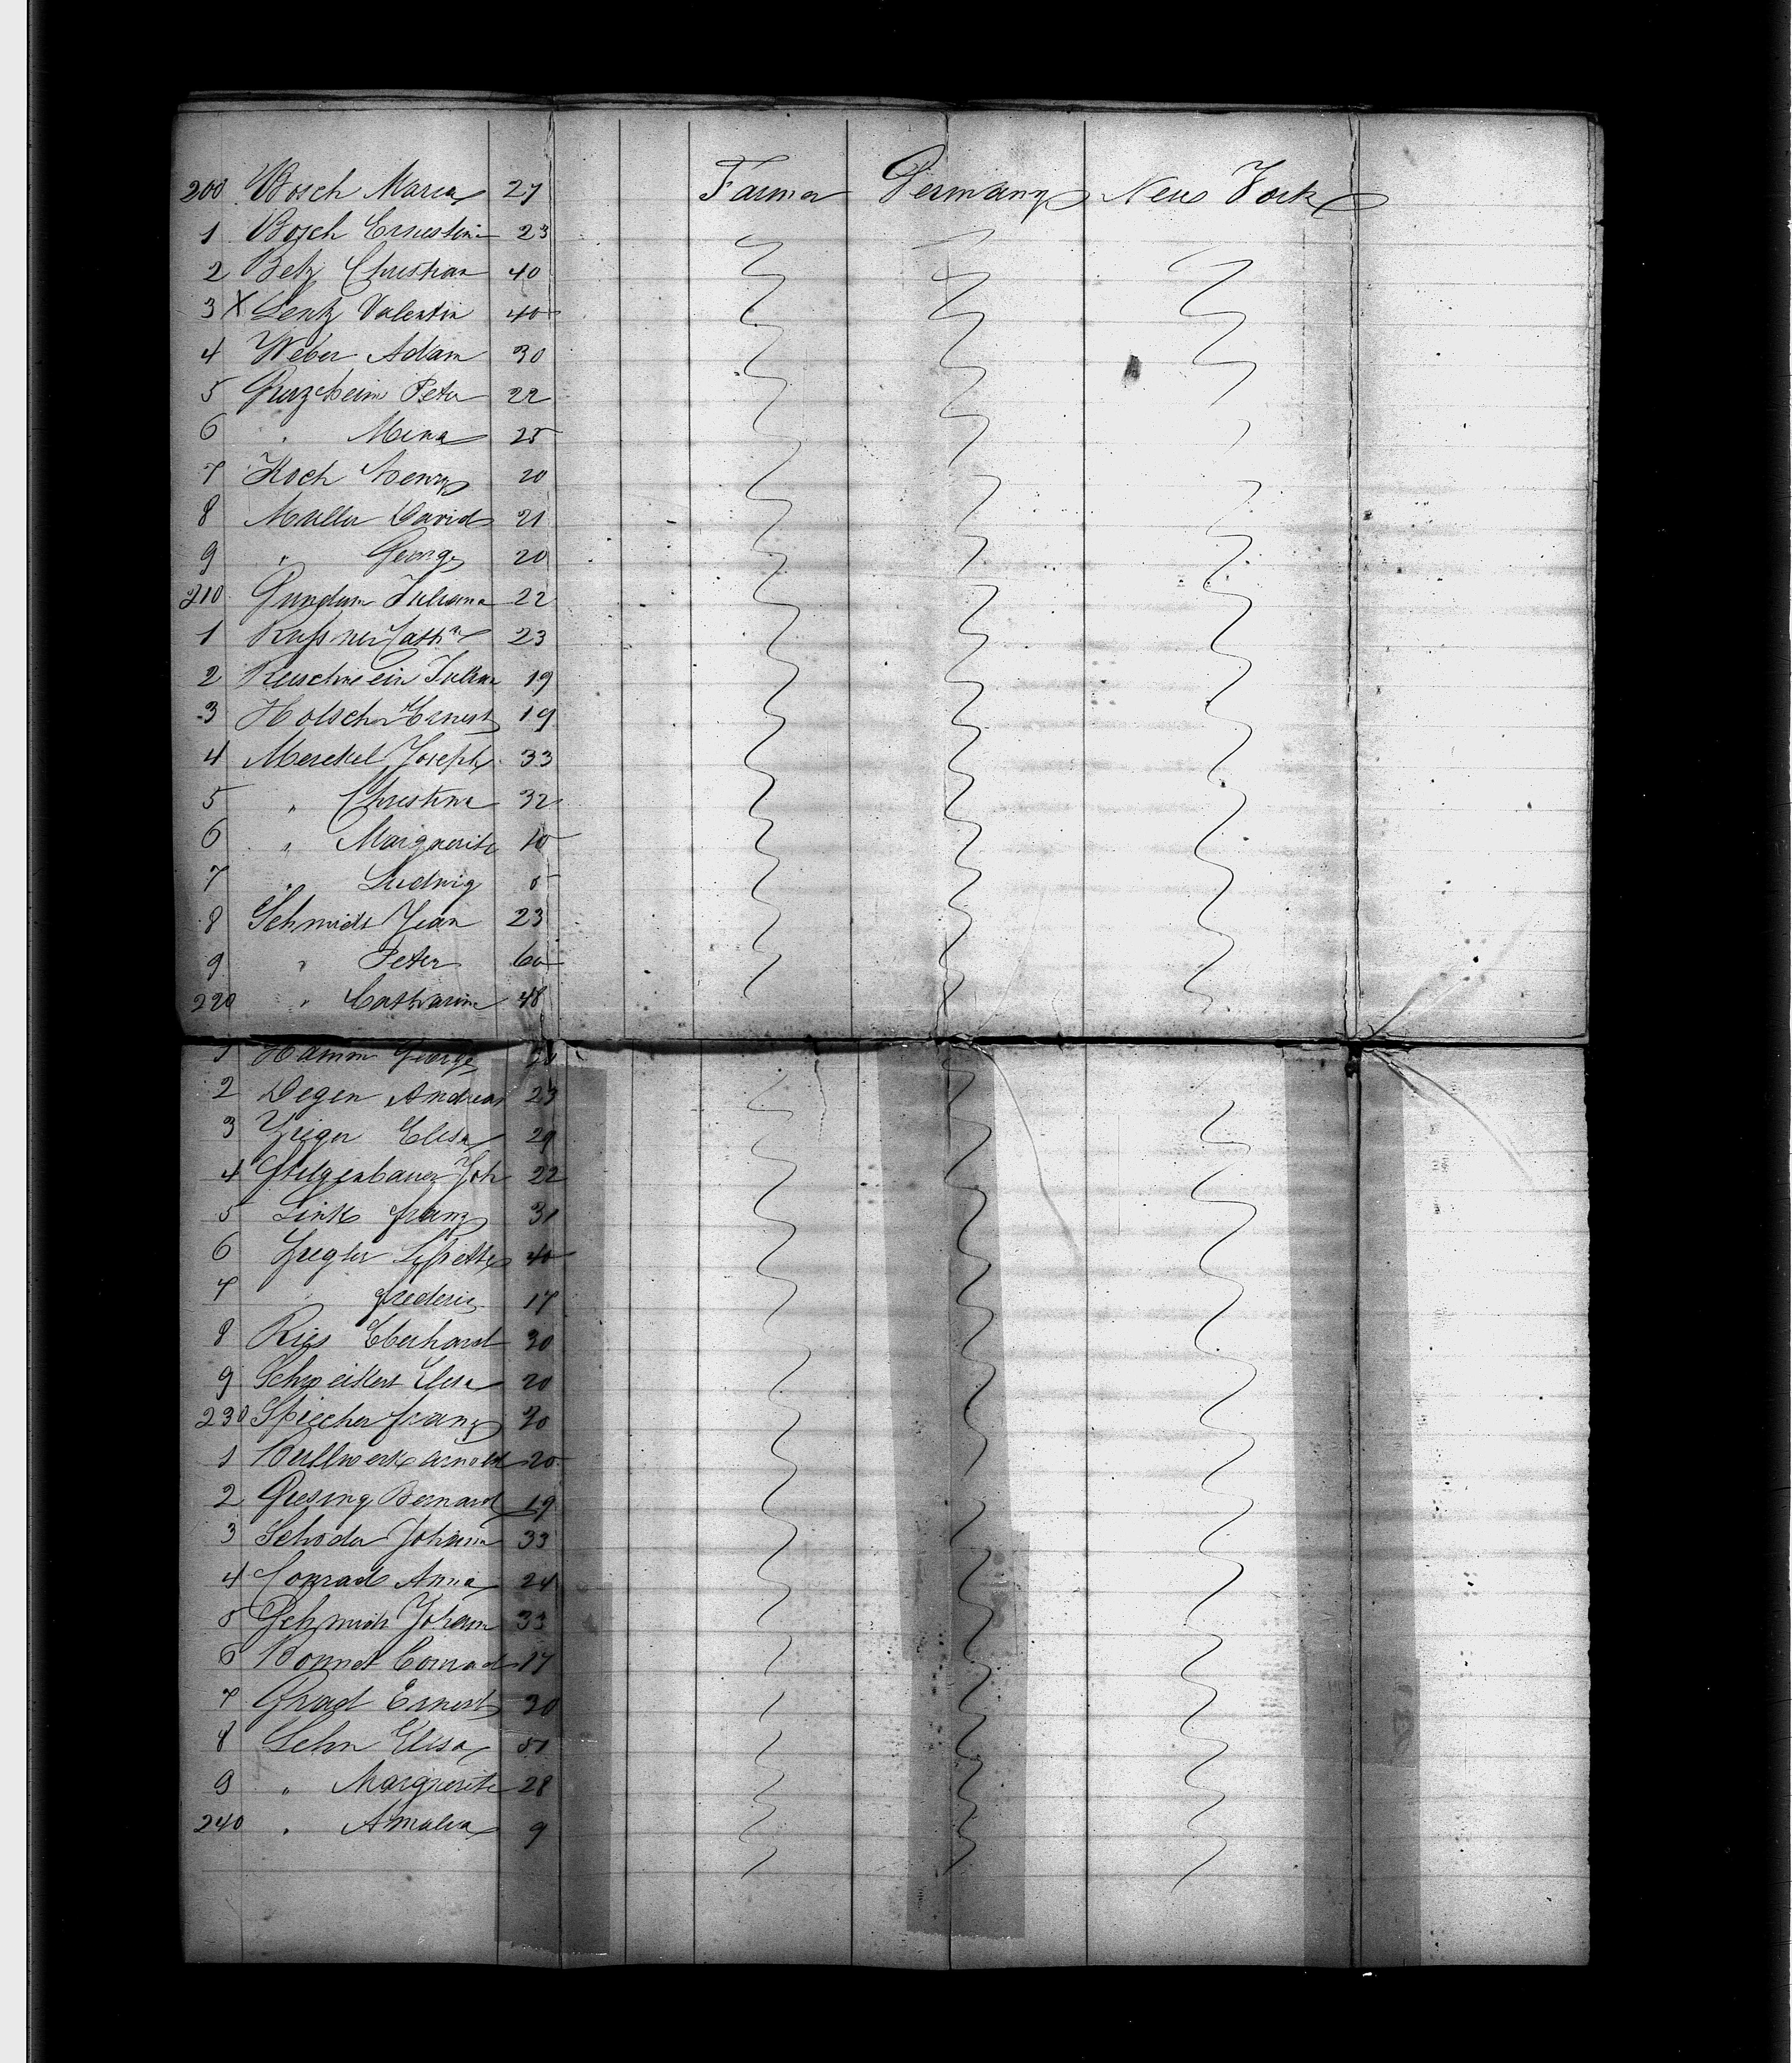 200 Bosch Maria 27 Farmer Germany New York
1 Bosch Ernestine 23
2 Betz Christian 40
3 X Lentz Valentin 40
4 Weber Adam 30
5 Peter 22
6 " Mina 25
7 Koch Henry 20
8 Muller David 21
9 " George 20
210 Juliana 22
1 Cathª 23
2 19
3 Holscher Ernest 19
4 Merckel Joseph 33
5 " Christina 32
6 " Marguerite 10
7 " Ludwig 5
8 Schmidt Jean 23
9 " Peter 60
220 " Catharine 48
1 Hamm George
2 Degen Andreas 23
3 Elisa 29
4 Stilgenbauer Joh 22
5 Link Franz 31
6 Ziegler 40
7 " Frederic 17
8 Ries Eberhard 30
9 Schweikert Elisa 20
230 Speicher Franz 30
1 Arnold 20
2 Giesing Bernard 19
3 Schoder Johann 33
4 Conrad Anna 24
5 Schmidt Johann 33
6 Bonnet Conrad 17
7 Ernest 30
8 Lehn Elisa 51
9 " Marguerite 28
240 " Amalia 9